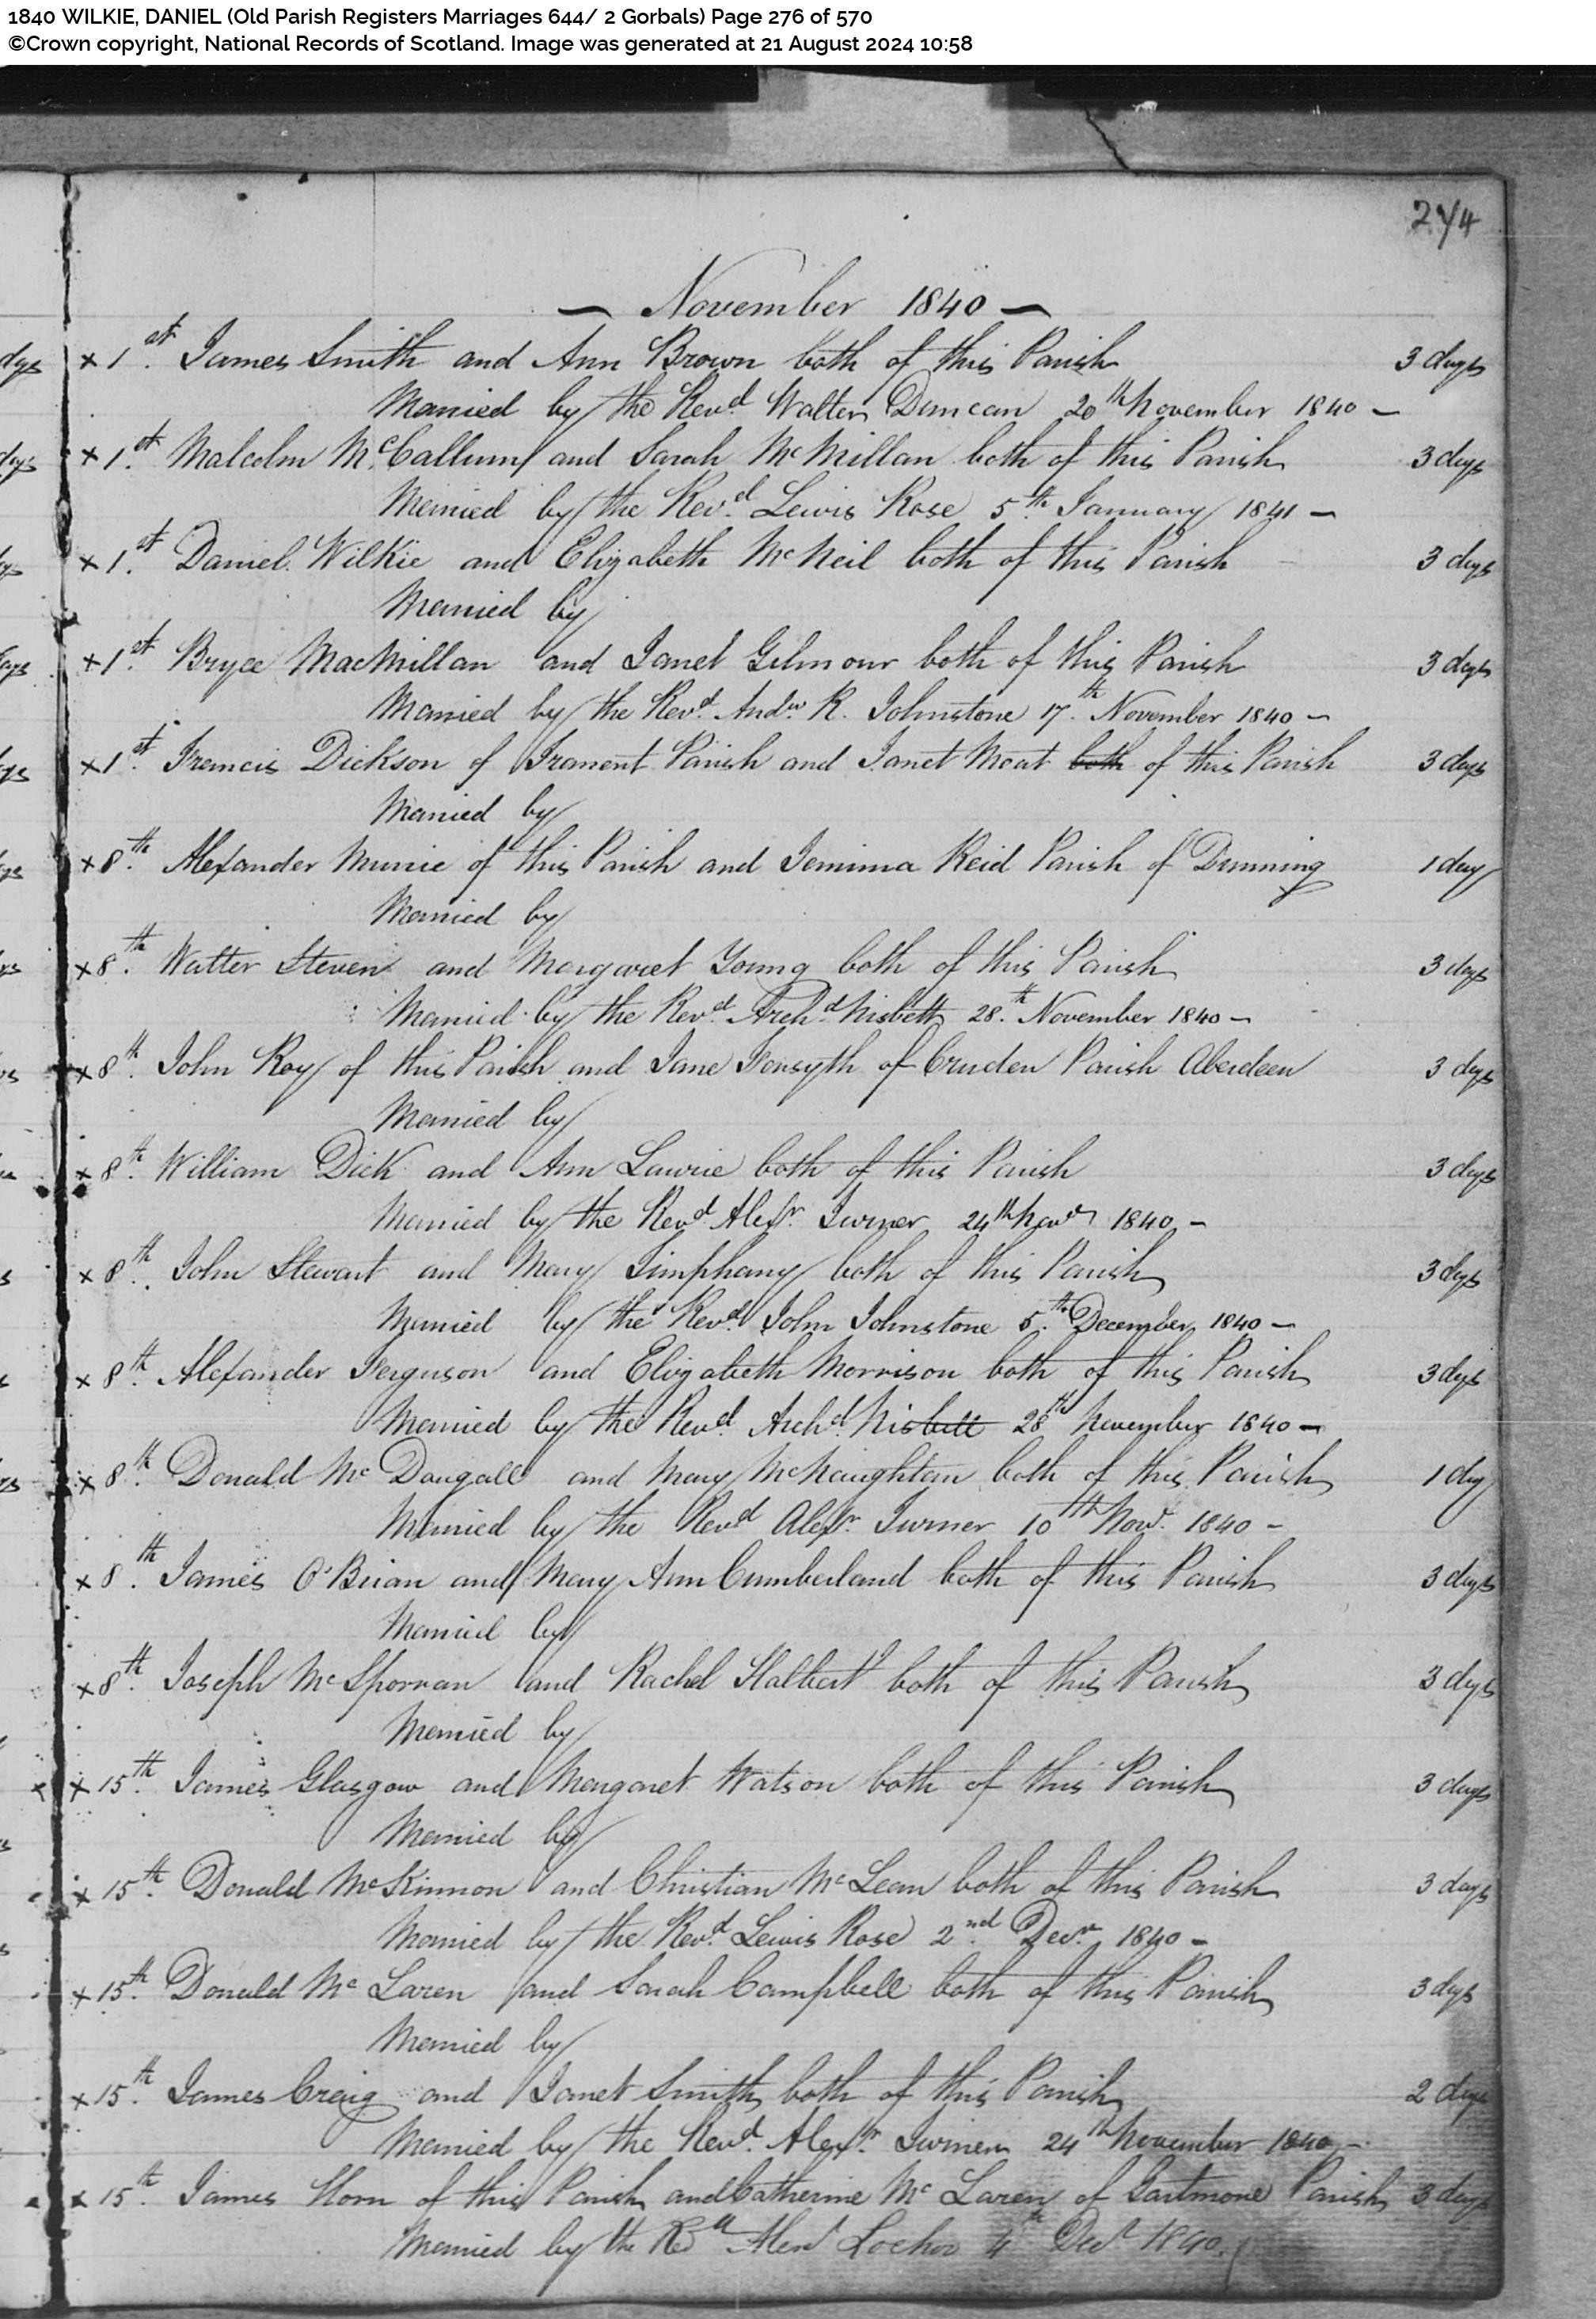 1840 WILKIE, DANIEL (Old Parish Registers Marriages 644/ 2 Gorbals) Page 276 of 570
©Crown copyright, National Records of Scotland. Image was generated at 21 August 2024 10:58
274
— November 1840 —
x 1st. James Smith and Ann Brown both of this Parish 3 days
Married by the Revd. Walter Duncan 20th November 1840 —
x 1st. Malcolm McCallum and Sarah McMillan both of this Parish 3 days
Married by the Revd. Lewis Rose 5th January 1841 —
x 1st. Daniel Wilkie and Elizabeth McNeil both of this Parish 3 days
Married by
x 1st. Bryce MacMillan and Janet Gilmour both of this Parish 3 days
Married by the Revd. Andw. R. Johnstone 17th. November 1840 —
x 1st. Francis Dickson of Tranent Parish and Janet Moat both of this Parish 3 days
Married by
x 8th. Alexander Murie of this Parish and Jemima Reid Parish of Dunning 1 day
Married by
x 8th. Walter Steven and Margaret Young both of this Parish 3 days
Married by the Revd. Archd. Nisbett 28th. November 1840 —
x 8th. John Roy of this Parish and Jane Forsyth of Cruden Parish Aberdeen 3 days
Married by
x 8th. William Dick and Ann Lawrie both of this Parish 3 days
Married by the Revd. Alexr. Turner 24th Novr 1840 —
x 8th. John Stewart and Mary Simphany both of this Parish 3 days
Married by the Revd. John Johnstone 5th. December 1840 —
x 8th. Alexander Ferguson and Elizabeth Morrison both of this Parish 3 days
Married by the Revd. Archd. Nisbett 28th November 1840 —
x 8th. Donald Mc Dougall and Mary McNaughtan both of this Parish 1 day
Married by the Revd Alexr. Turner 10th Novr. 1840 —
x 8th. James O'Brian and Mary Ann Cumberland both of this Parish 3 days
Married by
x 8th. Joseph McSporran and Rachel Halbert both of this Parish 3 days
Married by
x 15th. James Glasgow and Margaret Watson both of this Parish 3 days
Married by
x 15th. Donald McKinnon and Christian McLean both of this Parish 3 days
Married by the Revd. Lewis Rose 2nd. Decr. 1840 —
x 15th. Donald Mc Laren and Sarah Campbell both of this Parish 3 days
Married by
x 15th. James Craig and Janet Smith both of this Parish 2 days
Married by the Revd. Alexr. Turner 24th November 1840 —
x 15th. James Horn of this Parish and Catherine Mc Laren of Gartmore Parish 3 days
Married by the Rd Alexr Lochor 4th Decr 1840.